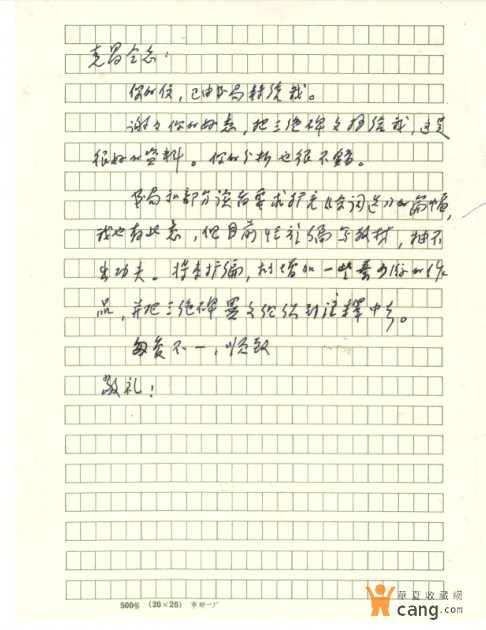 克昌同志：
你的信，已由书局转给我。
谢谢你的好意，把三绝碑文抄给我，这是
很好的资料。你的分析也很不错。
书局和部分读者要求扩充《宋词选》的篇幅，
我也有此意，但目前忙于编写教材，抽不
出功夫。将来扩编，增加一些秦少游的作
品，并把三绝碑异文收到注释中去。
匆复不一，顺致
敬礼！
500格 (20×25) 市印一厂
華夏收藏網
cang.com